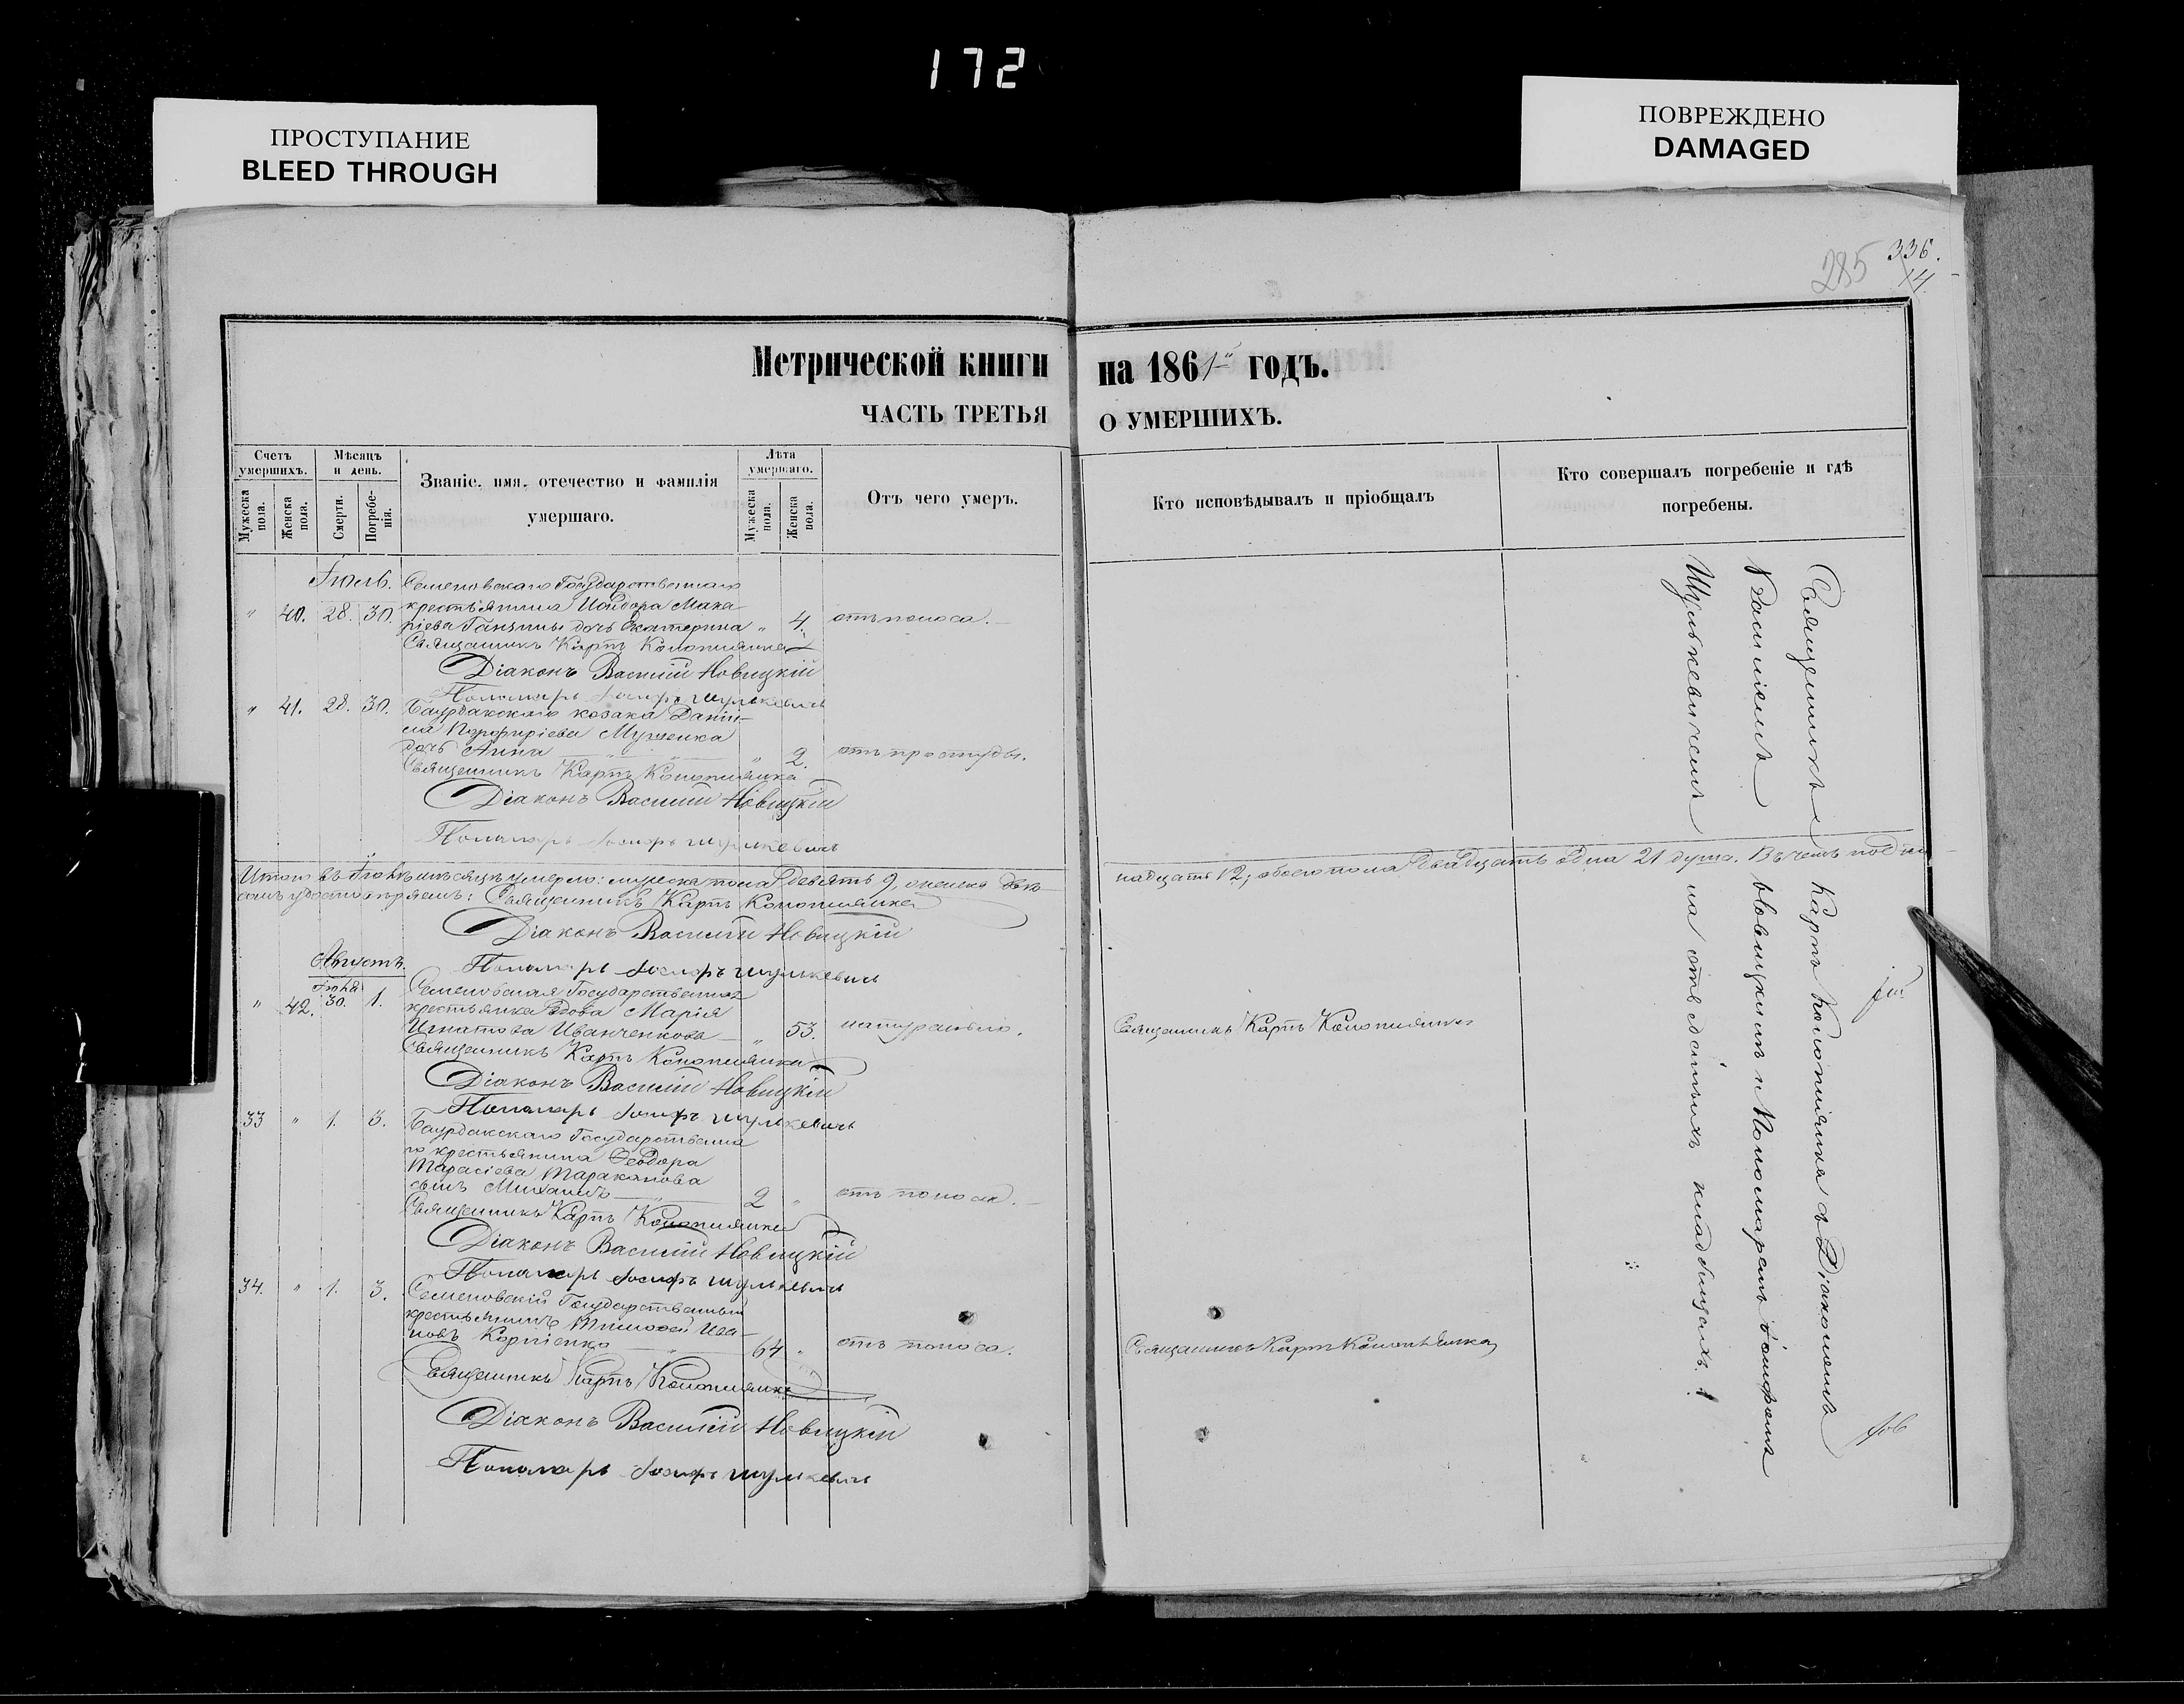 172
ПРОСТУПАНИЕ
BLEED THROUGH
ПОВРЕЖДЕНО
DAMAGED
285
336.
14.
Метрической книги на 1861 годъ.
ЧАСТЬ ТРЕТЬЯ О УМЕРШИХЪ.
Счетъ умершихъ.
Мужеска пола.
Женска пола.
Мѣсяцъ и день.
Смерти.
Погребенія.
Званіе, имя, отечество и фамилія
умершаго.
Лѣта умершаго.
Мужеска пола.
Женска пола.
Отъ чего умеръ.
Кто исповѣдывалъ и пріобщалъ
Кто совершалъ погребеніе и гдѣ
погребены.
Іюль.
Семеновскаго Государственнаго
" 40. 28. 30. крестьянина Исидора Мака-
ріева дочь Екатерина " 4. отъ поноса.
Священникъ Карпъ Конопляика
Діаконъ Василій Новицкій
Пономарь Іосифъ Шулькевичъ
" 41. 28. 30. Баурдакскаго козака Даніи-
ла Порфиріева
дочь Анна " 2. отъ простуды.
Священникъ Карпъ Конопляика
Діаконъ Василій Новицкій
Пономарь Іосифъ Шулькевичъ
Итого въ Іюлѣ мѣсяцѣ умерло: мужеска пола девять 9, женска двѣ-
надцать 12; обоего пола двадцать одна 21 душа. Въ чемъ подпи-
сомъ удостовѣряемъ: Священникъ Карпъ Конопляика
Діаконъ Василій Новицкій
Пономарь Іосифъ Шулькевичъ
Августъ.
Іюля
Семеновская Государственная
" 42. 30. 1. крестьянка вдова Марія
Игнатова Иванченкова " 53. натурально. Священникъ Карпъ Конопляика
Священникъ Карпъ Конопляика
Діаконъ Василій Новицкій
Пономарь Іосифъ Шулькевичъ
33 " 1. 3. Баурдакскаго Государственна
го крестьянина Ѳеодора
Тарасіева Тараканова
сынъ Михаилъ 2 " отъ поноса.
Священникъ Карпъ Конопляика
Діаконъ Василій Новицкій
Пономарь Іосифъ Шулькевичъ
34. " 1. 3. Семеновскій Государственный
крестьянинъ Тимоѳей Ива-
новъ Корніенко 64 " отъ поноса. Священникъ Карпъ Конопляика
Священникъ Карпъ Конопляика
Діаконъ Василій Новицкій
Пономарь Іосифъ Шулькевичъ
Священникъ Карпъ Конопляика съ Діакономъ
Василіемъ Новицкимъ и Пономаремъ Іосифомъ
Шулькевичемъ на кладбищахъ.